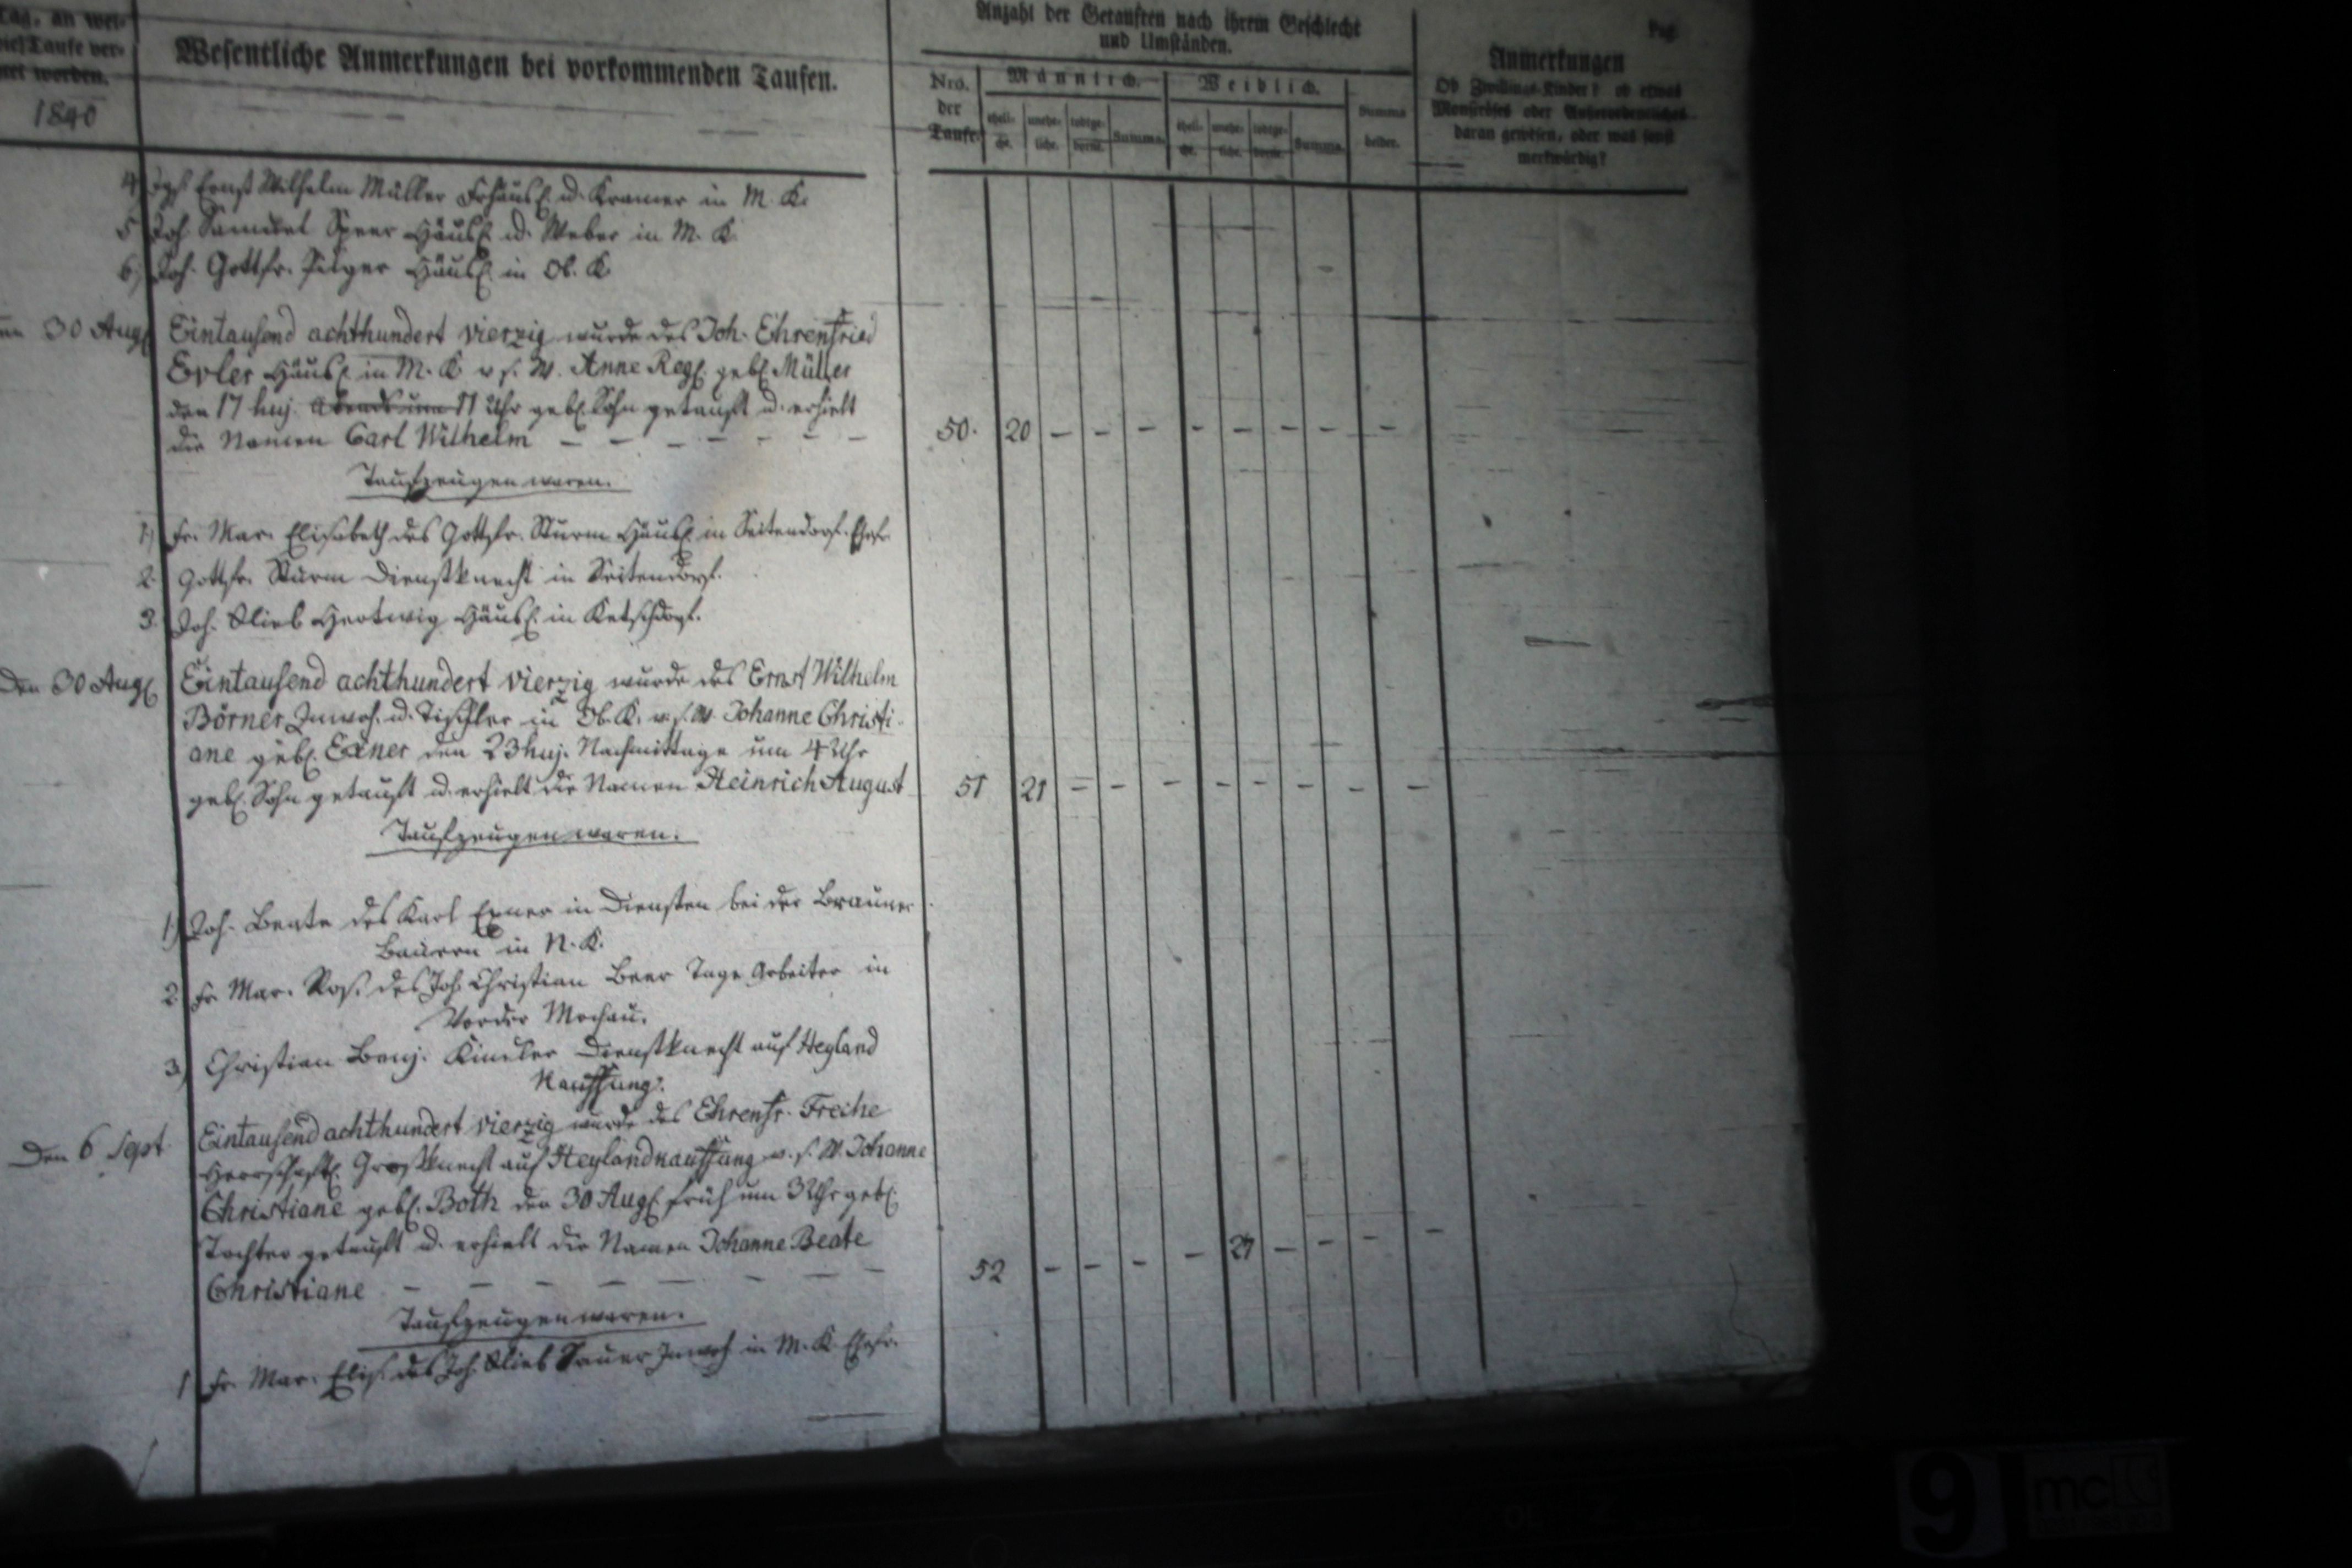 Tag, an wel-
Taufe ver-
worden.
1840
Wesentliche Anmerkungen bei vorkommenden Taufen.
Anzahl der Getauften nach ihrem Geschlecht
und Umständen.
Nro.
der
Taufe.
Männlich.
Weiblich.
eheli-
che.
unehe-
liche.
todtge-
borne.
Summa.
eheli-
che.
unehe-
liche.
todtge-
borne.
Summa.
Summa
beider.
Pag.
Anmerkungen
Ob Zwillings-Kinder? ob etwas
Monströses oder Außerordentliches
daran gewesen, oder was sonst
merkwürdig?
4) Ernst Wilhelm Müller Frhäusl. u. Kramer in M. K.
5 Joh. Samuel Speer Häusl. u. Weber in M. K.
6) Joh. Gottfr. Pilger Häusl. in Ob. K.
30 Aug. Eintausend achthundert vierzig wurde des Joh. Ehrenfried
Häusl. in M. K. v. s. W. Anne Reg. geb. Müller
den 17 huj. Abends um 11 Uhr geb. Sohn getauft u. erhielt
die Namen Carl Wilhelm – – – – – – –
50. 20 – – – – – – – –
Taufzeugen waren.
1) Fr. Mar. Elisabeth des Gottfr. Sturm Häusl. in Seitendorf. Ehefr.
2. Gottfr. Sturm Dienstknecht in Seitendorf.
3. Joh. Glieb Hertwig Häusl. in Ketschdorf.
Den 30 Aug. Eintausend achthundert vierzig wurde des Ernst Wilhelm
Börner, Inwoh. u. Tischler in Ob. K. v. s. W. Johanne Christi-
ane geb. Exner den 23 huj. Nachmittags um 4 Uhr
geb. Sohn getauft u. erhielt die Namen Heinrich August
51 21 – – – – – – – –
Taufzeugen waren.
1.) Joh. Beate des Karl Exner in Diensten bei der Brauner
Bauern in N. K.
2. Fr. Mar. Ros. des Joh. Christian Beer Tage Arbeiter in
Vorder Mochau.
3) Christian Benj. Kindler Dienstknecht auf Heyland
Kauffung.
Den 6 Sept. Eintausend achthundert vierzig wurde des Ehrenfr. Freche
Herrschaftl. Großknecht auf Heylandkauffung v. s. W. Johanne
Christiane geb. Both den 30 Aug. früh um 3 Uhr geb.
Tochter getauft u. erhielt die Namen Johanne Beate
Christiane – – – – – – –
52 – – – – 27 – – – –
Taufzeugen waren.
1 Fr. Mar. Elis. des Joh. Glieb Sauer Inwoh in M. K. Ehefr.
9
mc